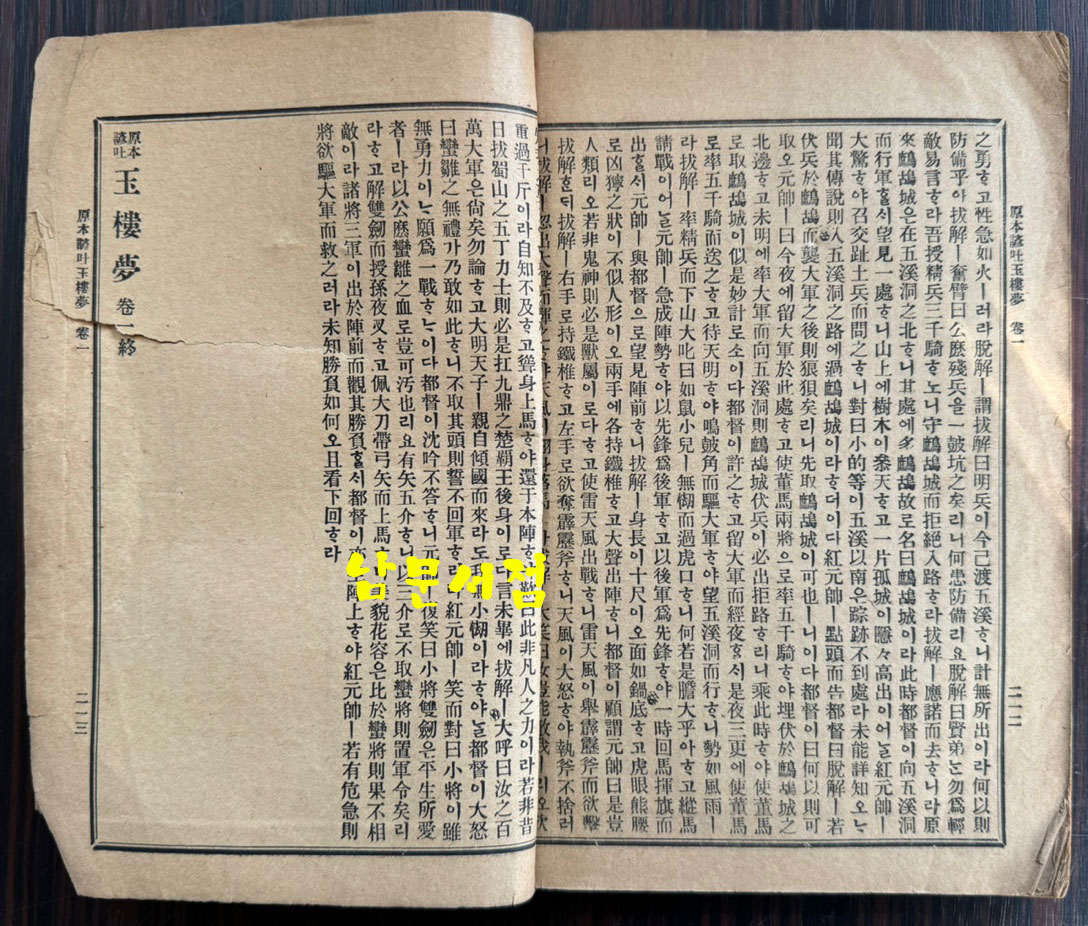 原本諺吐玉樓夢 卷一
二一二
之勇ᄒᆞ고性急如火ㅣ러라脫解ㅣ謂拔解曰明兵이今已渡五溪ᄒᆞ니計無所出이라何以則
防備乎아拔解ㅣ奮臂曰么麽殘兵을一皷坑之矣리니何患防備리요脫解曰賢弟ᄂᆞᆫ勿爲輕
敵易言ᄒᆞ라吾授精兵三千騎ᄒᆞ노니守鷓鴣城而拒絶入路ᄒᆞ라拔解ㅣ應諾而去ᄒᆞ니라原
來鷓鴣城은在五溪洞之北ᄒᆞ니其處에多鷓鴣故로名曰鷓鴣城이라此時都督이向五溪洞
而行軍ᄒᆞᆯᄉᆡ望見一處ᄒᆞ니山上에樹木이叅天ᄒᆞ고一片孤城이隱々高出이어ᄂᆞᆯ紅元帥ㅣ
大驚ᄒᆞ야召交趾土兵而問之ᄒᆞ니對曰小的等이五溪以南은踪跡不到處라未能詳知오ᄂᆞᆫ
聞其傳說則入五溪洞之路에過鷓鴣城이라ᄒᆞ더이다紅元帥ㅣ點頭而告都督曰脫解ㅣ若
伏兵於鷓鴣而襲大軍之後則狼狽矣리니先取鷓鴣城이可也ㅣ니이다都督이曰何以則可
取오元帥ㅣ曰今夜에留大軍於此處ᄒᆞ고使董馬兩將으로率五千騎ᄒᆞ야埋伏於鷓鴣城之
北邊ᄒᆞ고未明에率大軍而向五溪洞則鷓鴣城伏兵이必出拒路ᄒᆞ리니乘此時ᄒᆞ야使董馬
로取鷓鴣城이似是妙計로소이다都督이許之ᄒᆞ고留大軍而經夜ᄒᆞᆯᄉᆡ是夜三更에使董馬
로率五千騎而送之ᄒᆞ고待天明ᄒᆞ야鳴皷角而驅大軍ᄒᆞ야望五溪洞而行ᄒᆞ니勢如風雨ㅣ
라拔解ㅣ率精兵而下山大叱曰如鼠小兒ㅣ無㥘而過虎口ᄒᆞ니何若是膽大乎아ᄒᆞ고縱馬
請戰이어ᄂᆞᆯ元帥ㅣ急成陣勢ᄒᆞ야以先鋒爲後軍ᄒᆞ고以後軍爲先鋒ᄒᆞ야一時回馬揮旗而
出ᄒᆞᆯᄉᆡ元帥ㅣ與都督으로望見陣前ᄒᆞ니拔解ㅣ身長이十尺이오面如鍋底ᄒᆞ고虎眼熊腰
로凶獰之狀이不似人形이오兩手에各持鐵椎ᄒᆞ고大聲出陣ᄒᆞ니都督이顧謂元帥曰是豈
人類리오若非鬼神則必是獸屬이로다ᄒᆞ고使雷天風出戰ᄒᆞ니雷天風이舉霹靂斧而欲擊
拔解ᄒᆞᆫᄃᆡ拔解ㅣ右手로持鐵椎ᄒᆞ고左手로欲奪霹靂斧ᄒᆞ니天風이大怒ᄒᆞ야執斧不捨러
重過千斤이라自知不及ᄒᆞ고聳身上馬ᄒᆞ야還于本陣ᄒᆞ야歎曰此非凡人之力이라若非昔
日拔蜀山之五丁力士則必是扛九鼎之楚覇王後身이로다言未畢에拔解ㅣ大呼曰汝之百
萬大軍은尙矣勿論ᄒᆞ고大明天子ㅣ親自傾國而來라도我無小㥘이라ᄒᆞ야ᄂᆞᆯ都督이大怒
曰蠻雛之無禮가乃敢如此ᄒᆞ니不取其頭則誓不回軍ᄒᆞ리라紅元帥ㅣ笑而對曰小將이雖
無勇力이ᄂᆞ願爲一戰ᄒᆞᄂᆞ이다都督이沈吟不答ᄒᆞ니元帥又笑曰小將雙劒은平生所愛
者ㅣ라以么麽蠻雛之血로豈可汚也리요有矢五介ᄒᆞ니以三介로不取蠻將則置軍令矣리
라ᄒᆞ고解雙劒而授孫夜叉ᄒᆞ고佩大刀帶弓矢而上馬ᄒᆞ 貌花容은比於蠻將則果不相
敵이라諸將三軍이出於陣前而觀其勝負ᄒᆞᆯᄉᆡ都督이 陣上ᄒᆞ야紅元帥ㅣ若有危急則
將欲驅大軍而救之러라未知勝負如何오且看下回ᄒᆞ라
原本諺吐 玉樓夢 卷一 終
原本諺吐玉樓夢 卷一
二一三
남문서점